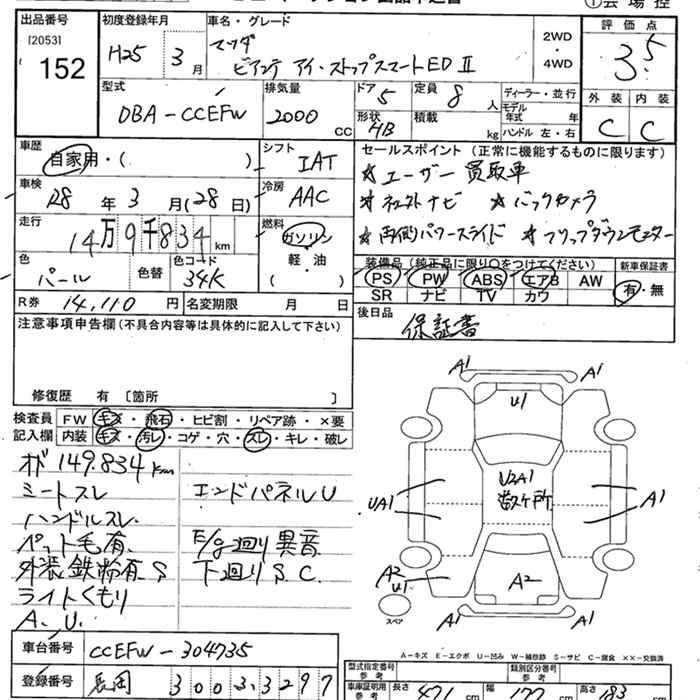 出品番号
[2053]
152
初度登録年月
H25 3月
車名・グレード
マツダ
ビアンテ アイ・ストップスマートED II
2WD
・
4WD
評価点
3.5
外装 内装
C C
型式
DBA-CCEFW
排気量
2000 cc
ドア 5
定員 8人
形状 HB
積載 kg
ディーラー・並行
モデル年式 年
ハンドル 左・右
車歴
自家用・( )
シフト
IAT
車検
28年3月(28日)
冷房
AAC
走行
14万9千834km
燃料
ガソリン
軽・油
( )
色
パール
色替
色コード
34K
R券 14,110円
名変期限 月 日
セールスポイント(正常に機能するものに限ります)
☆ユーザー買取車
☆ネクストナビ ☆バックカメラ
☆両側パワースライド ☆フリップダウンモニター
装備品(純正品に限り○をつけてください)
PS PW ABS エアB AW
SR ナビ TV カワ
新車保証書
有・無
後日品
保証書
注意事項申告欄(不具合内容等は具体的に記入して下さい)
修復歴 有 〔箇所 〕
検査員記入欄
FW キズ・飛石・ヒビ割・リペア跡・×要
内装 キズ・汚レ・コゲ・穴・スレ・キレ・破レ
メド 149.834km
シートスレ
ハンドルスレ
ペット毛有
外装鉄粉有 S
ライトくもり
A. U.
エンドパネルU
E/g廻り異音
下廻りS C.
A1 A1
U1
U2A1
数ヶ所
UA1 A1
A2
U1
A2
A1 A1
スペア
A-キズ E-エクボ U-凹み W-補修跡 S-サビ C-腐食 ××-交換済
車台番号 CCEFW-304735
登録番号 長岡 300 ふ 3297
型式指定番号
参考
類別区分番号
参考
車庫証明用
参考
長さ 471cm 幅 177cm 高さ 183cm